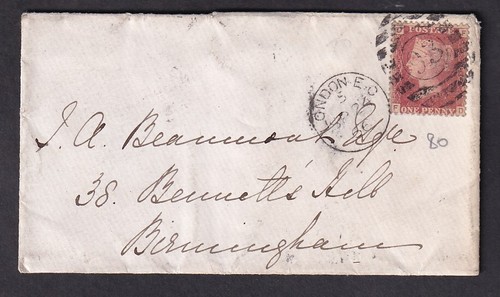 POSTAGE
ONE PENNY
LONDON·E.C
80
J. A. Beaumont Esqe
38. Bennett's Hill
Birmingham